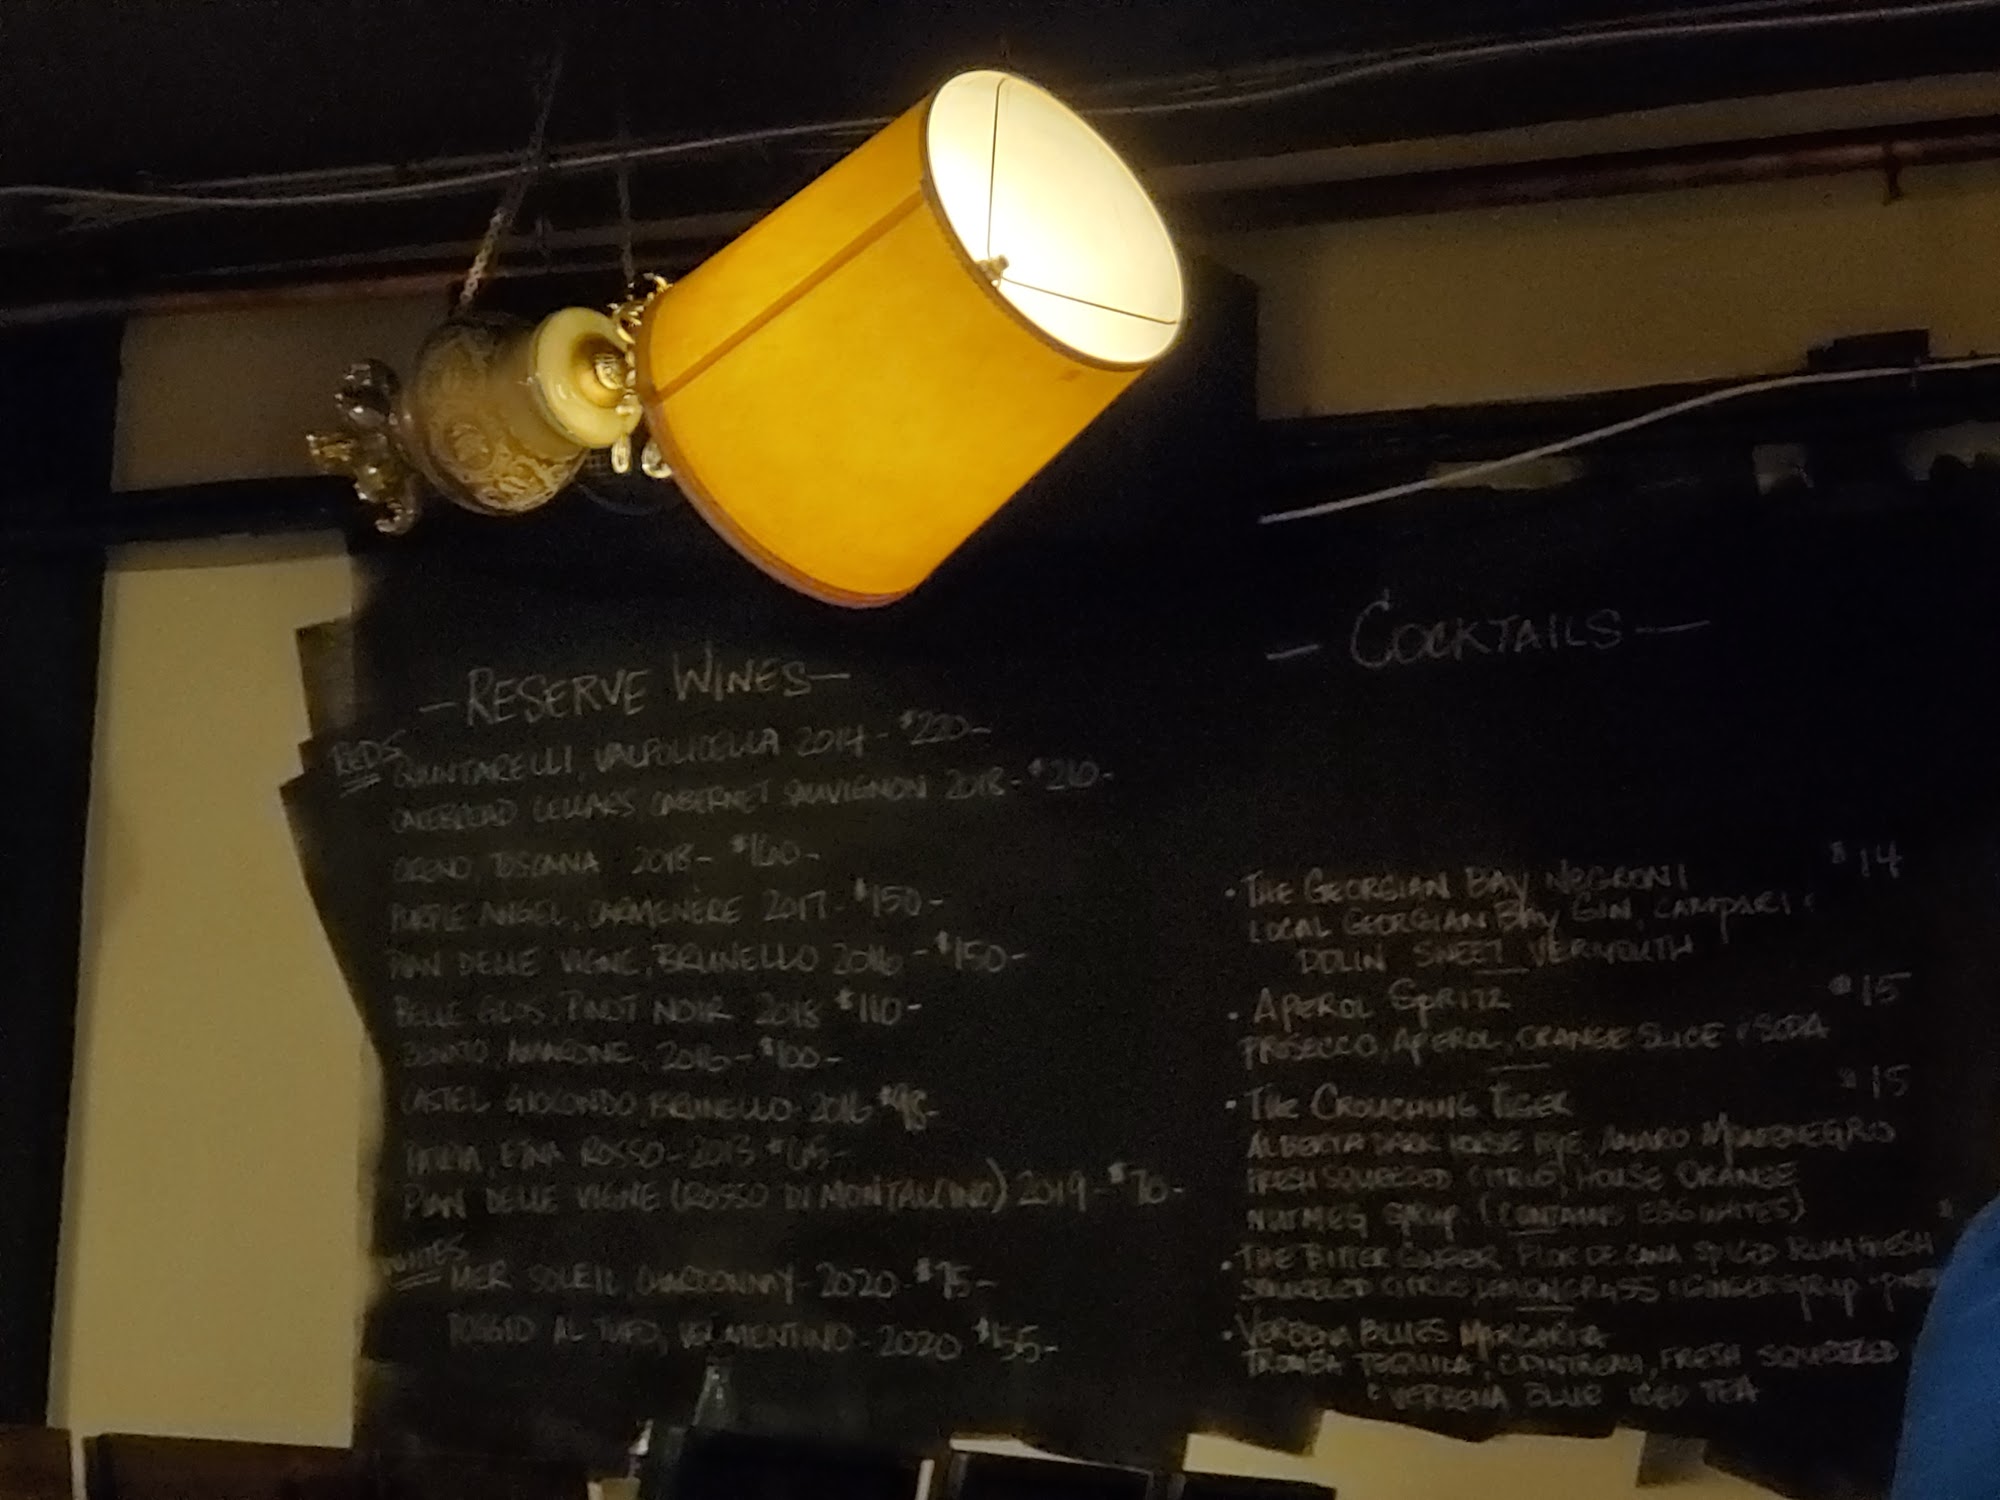 - RESERVE WINES -
REDS
QUINTARELLI, VALPOLICELLA 2014 - $220-
CAKEBREAD CELLARS CABERNET SAUVIGNON 2018 - $210-
ORENO, TOSCANA 2018 - $160-
PURPLE ANGEL, CARMENÈRE 2017 - $150-
PIAN DELLE VIGNE, BRUNELLO 2016 - $150-
BELLE GLOS, PINOT NOIR 2018 $110-
AMARONE, 2016 - $100-
CASTEL GIOCONDO, BRUNELLO - 2016 $98-
ETNA ROSSO - 2013 $65-
PIAN DELLE VIGNE (ROSSO DI MONTALCINO) 2019 - $70-
WHITES
MER SOLEIL, CHARDONNAY - 2020 - $75-
POGGIO AL TUFO, VERMENTINO - 2020 $55-
- COCKTAILS -
• THE GEORGIAN BAY NEGRONI $14
LOCAL GEORGIAN BAY GIN, CAMPARI &
DOLIN SWEET VERMOUTH
• APEROL SPRITZ $15
PROSECCO, APEROL, ORANGE SLICE & SODA
• THE CROUCHING TIGER $15
ALBERTA DARK HORSE RYE, AMARO MONTENEGRO
FRESH SQUEEZED CITRUS, HOUSE ORANGE
NUTMEG SYRUP (CONTAINS EGG WHITES)
• THE BITTER GINGER FLOR DE CANA SPICED RUM FRESH
SQUEEZED CITRUS, LEMONGRASS & GINGER SYRUP
• VERBENA BLUES MARGARITA
TROMBA TEQUILA, COINTREAU, FRESH SQUEEZED
& VERBENA BLUE ICED TEA